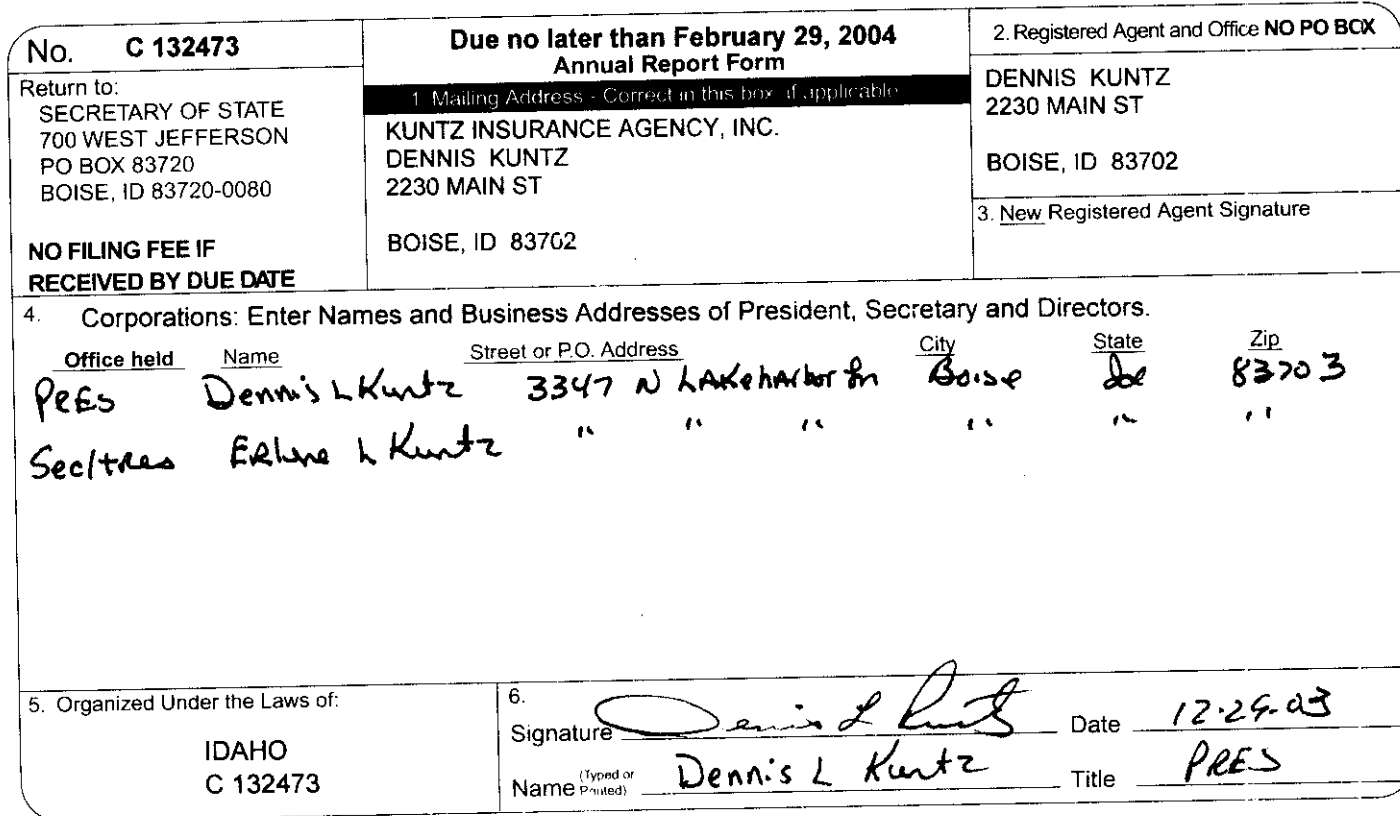 No. C 132473
Return to:
SECRETARY OF STATE
700 WEST JEFFERSON
PO BOX 83720
BOISE, ID 83720-0080
NO FILING FEE IF
RECEIVED BY DUE DATE
Due no later than February 29, 2004
Annual Report Form
1. Mailing Address - Correct in this box if applicable
KUNTZ INSURANCE AGENCY, INC.
DENNIS KUNTZ
2230 MAIN ST
BOISE, ID 83702
2. Registered Agent and Office NO PO BOX
DENNIS KUNTZ
2230 MAIN ST
BOISE, ID 83702
3. New Registered Agent Signature
4. Corporations: Enter Names and Business Addresses of President, Secretary and Directors.
Office held Name Street or P.O. Address City State Zip
PRES Dennis L Kuntz 3347 N LAKeharbor Ln Boise 83703
Sec/tres ERlene L Kuntz " " " " " "
5. Organized Under the Laws of:
IDAHO
C 132473
6.
Signature Dennis L Kuntz Date
Name (Typed or Printed) Dennis L Kuntz Title PRES